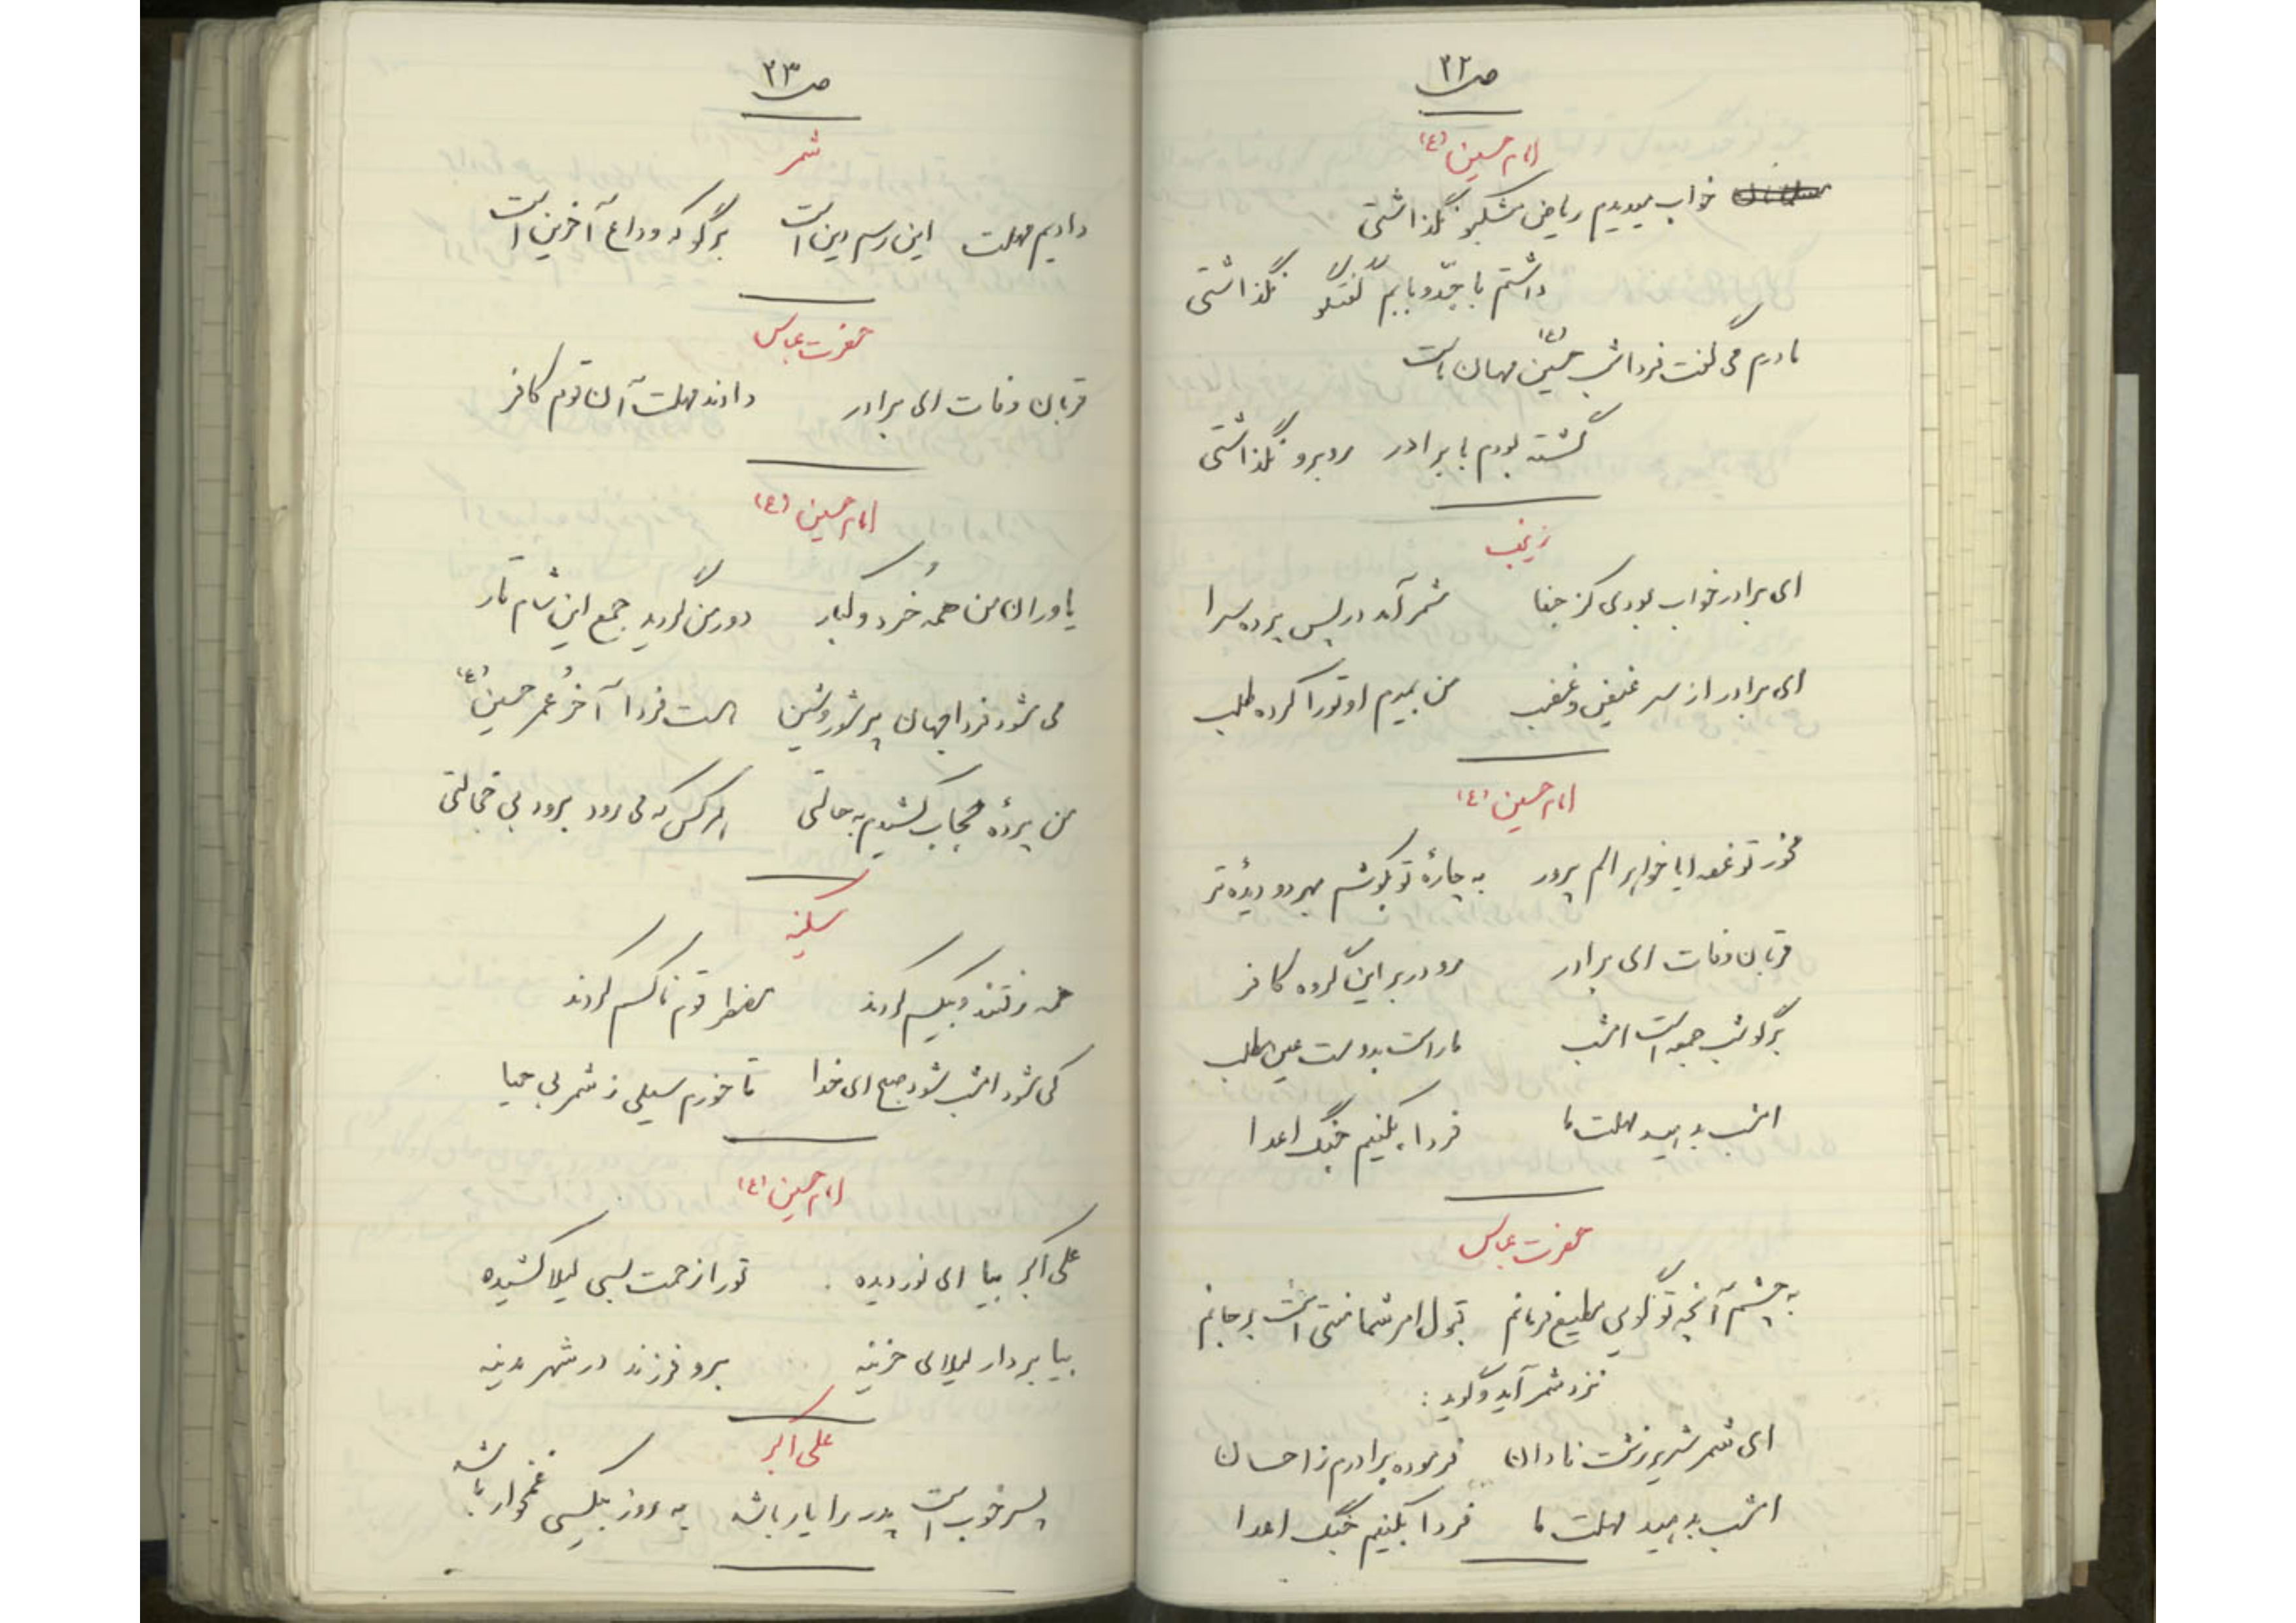 ص ۲۲
امام حسین (ع)
خواب میدیدم ریاض مشکبو نگذاشتی
داشتم با جدّ و بابم گفتگو نگذاشتی
مادرم می گفت فردا شب حسین (ع) مهمان ماست
گشته بودم با برادر روبرو نگذاشتی
زینب
ای برادر خواب بودی کز جفا شمر آمد در پس پرده سرا
ای برادر از سر غیض و غضب من بمیرم او تو را کرده طلب
امام حسین (ع)
مخور تو غصه ایا خواهر الم پرور به چارۀ تو بکوشم بهر دو دیدۀ تر
قربان وفات ای برادر رو در بر این گروه کافر
برگو شب جمعه است امشب ما راست بدوست عین مطلب
امشب بدهید مهلت ما فردا بکنیم جنگ اعدا
حضرت عباس
به چشم آنچه تو گویی مطیع فرمانم قبول امر شما منتی است بر جانم
نزد شمر آید و گوید :
ای شمر شریر زشت نادان فرموده برادرم ز احسان
امشب بدهید مهلت ما فردا بکنیم جنگ اعدا
ص ۲۳
شمر
دادیم مهلت این رسم دین است برگو که وداع آخرین است
حضرت عباس
قربان وفات ای برادر دادند مهلت آن قوم کافر
امام حسین (ع)
یاوران من همه خُرد و کبار دور من گردید جمع این شام تار
می شود فردا جهان پر شور و شین هست فردا آخر عُمر حسین (ع)
من پردۀ حجاب کشیدم به حالتی هر کس که می رود برود بی خجالتی
سکینه
همه رفتند و بیکسم کردند مضطر قوم ناکسم کردند
کی شود امشب شود صبح ای خدا تا خورم سیلی ز شمر بی حیا
امام حسین (ع)
علی اکبر بیا ای نور دیده تو را زحمت بسی لیلا کشیده
بیا بردار لیلای حزینه برو فرزند در شهر مدینه
علی اکبر
پسر خوب است پدر را یار باشد به روز بیکسی غمخوار باشد